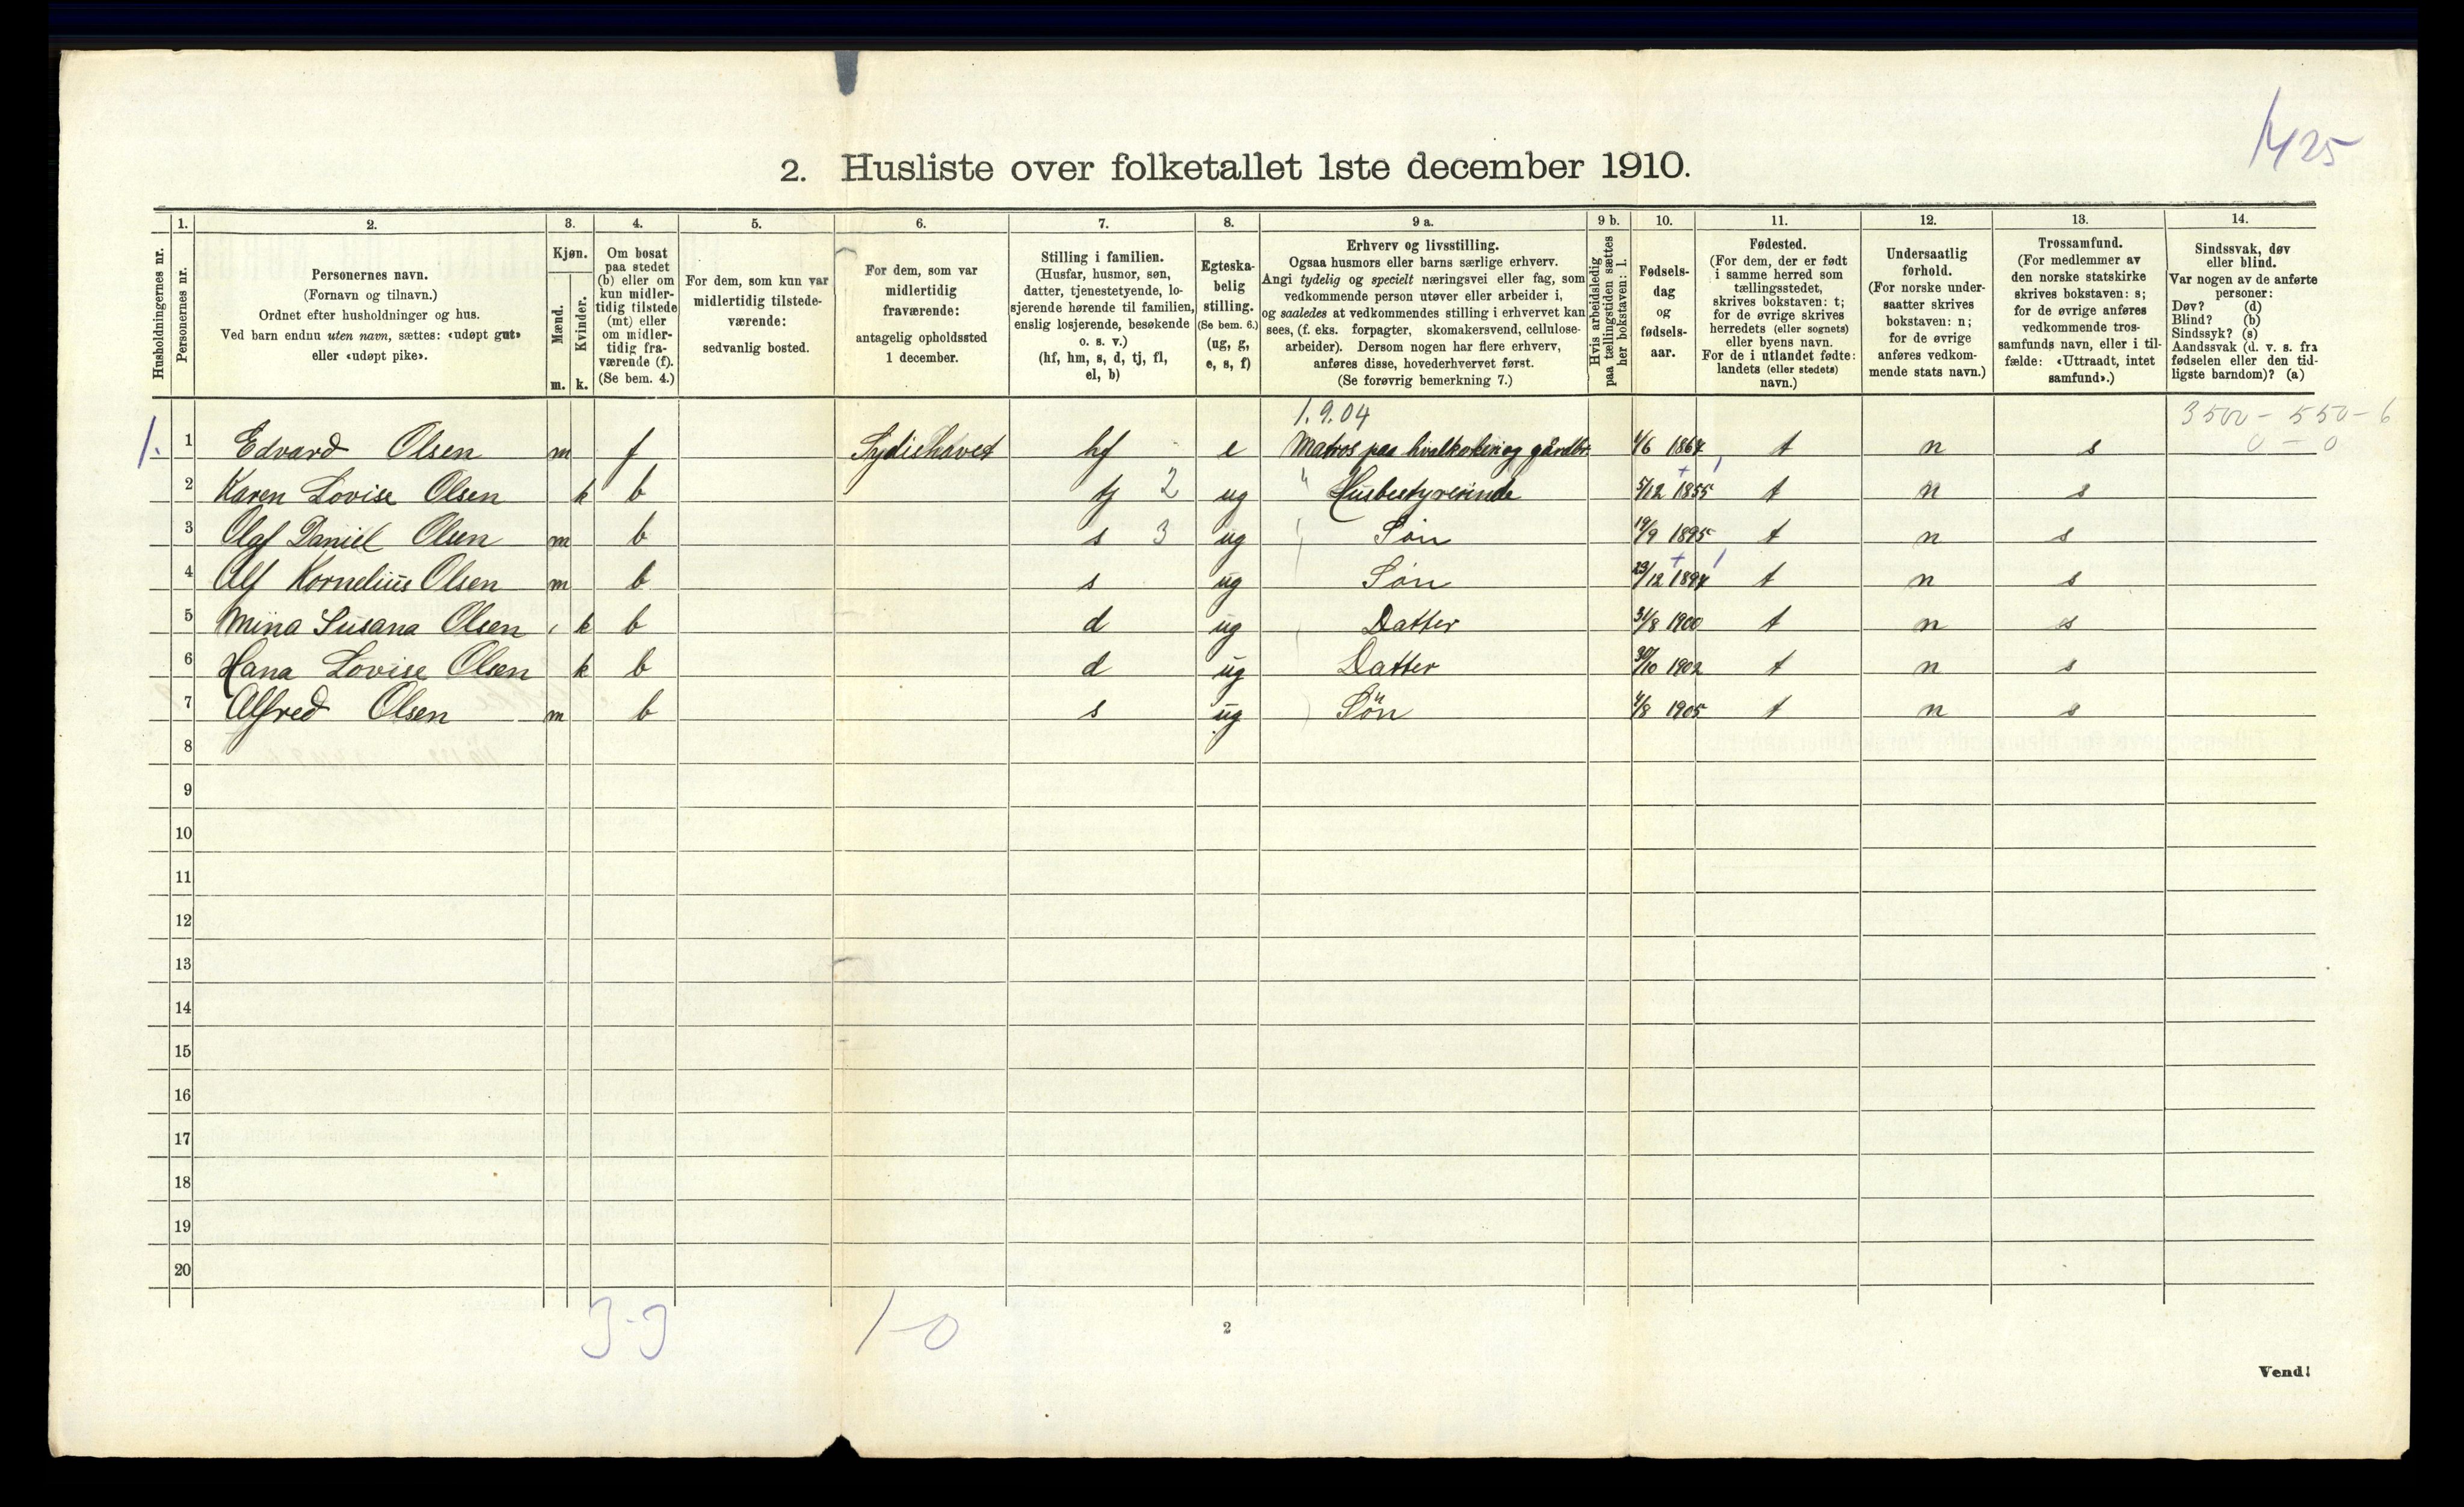 1425
2. Husliste over folketallet 1ste december 1910.
Husholdningernes nr.
1.
Personernes nr.
2.
Personernes navn.
(Fornavn og tilnavn.)
Ordnet efter husholdninger og hus.
Ved barn endnu uten navn, sættes: «udøpt gut»
eller «udøpt pike».
3.
Kjøn.
Mænd.
m.
Kvinder.
k.
4.
Om bosat
paa stedet
(b) eller om
kun midler-
tidig tilstede
(mt) eller
om midler-
tidig fra-
værende (f).
(Se bem. 4.)
5.
For dem, som kun var
midlertidig tilstede-
værende:
sedvanlig bosted.
6.
For dem, som var
midlertidig
fraværende:
antagelig opholdssted
1 december.
7.
Stilling i familien.
(Husfar, husmor, søn,
datter, tjenestetyende, lo-
sjerende hørende til familien,
enslig losjerende, besøkende
o. s. v.)
(hf, hm, s, d, tj, fl,
el, b)
8.
Egteska-
belig
stilling.
(Se bem. 6.)
(ug, g,
e, s, f)
9 a.
Erhverv og livsstilling.
Ogsaa husmors eller barns særlige erhverv.
Angi tydelig og specielt næringsvei eller fag, som
vedkommende person utøver eller arbeider i,
og saaledes at vedkommendes stilling i erhvervet kan
sees, (f. eks. forpagter, skomakersvend, cellulose-
arbeider). Dersom nogen har flere erhverv,
anføres disse, hovederhvervet først.
(Se forøvrig bemerkning 7.)
9 b.
Hvis arbeidsledig
paa tællingstiden sættes
her bokstaven: l.
10.
Fødsels-
dag
og
fødsels-
aar.
11.
Fødested.
(For dem, der er født
i samme herred som
tællingsstedet,
skrives bokstaven: t;
for de øvrige skrives
herredets (eller sognets)
eller byens navn.
For de i utlandet fødte:
landets (eller stedets)
navn.)
12.
Undersaatlig
forhold.
(For norske under-
saatter skrives
bokstaven: n;
for de øvrige
anføres vedkom-
mende stats navn.)
13.
Trossamfund.
(For medlemmer av
den norske statskirke
skrives bokstaven: s;
for de øvrige anføres
vedkommende tros-
samfunds navn, eller i til-
fælde: «Uttraadt, intet
samfund».)
14.
Sindssvak, døv
eller blind.
Var nogen av de anførte
personer:
Døv? (d)
Blind? (b)
Sindssyk? (s)
Aandssvak (d. v. s. fra
fødselen eller den tid-
ligste barndom)? (a)
1.9.04
3500 - 550 - 6
0 - 0
1. 1 Edvard Olsen m f Sydishavet hf e Matros paa hvalkokeri og gårdbr. 4/6 1867 t n s
2 Karen Lovise Olsen k b tj 2 ug Husbestyrerinde 5/12 1855 t n s
3 Olaf Daniel Olsen m b s 3 ug Søn 19/9 1895 t n s
4 Alf Kornelius Olsen m b s ug Søn 23/12 1897 t n s
5 Mina Susana Olsen k b d ug Datter 31/8 1900 t n s
6 Hana Lovise Olsen k b d ug Datter 30/10 1902 t n s
7 Alfred Olsen m b s ug Søn 4/8 1905 t n s
8
9
10
11
12
13
14
15
16
17
18
19
20
3-3 1-0
2
Vend!